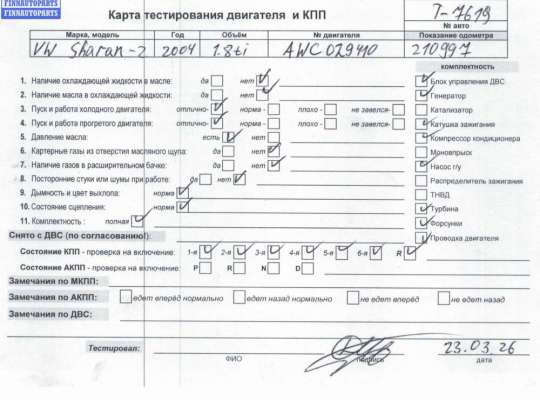 FINNAUTOPARTS
FINNAUTOPARTS
Карта тестирования двигателя и КПП
Т-7619
№ авто
Марка, модель Год Объём № двигателя Показание одометра
VW Sharan-2 2004 1.8ti AWC029410 210997
комплектность
1. Наличие охлаждающей жидкости в масле: да нет
Блок управления ДВС
2. Наличие масла в охлаждающей жидкости: да нет
Генератор
3. Пуск и работа холодного двигателя: отлично- норма - плохо - не завелся-
Катализатор
4. Пуск и работа прогретого двигателя: отлично- норма - плохо - не завелся-
Катушка зажигания
5. Давление масла: есть нет
Компрессор кондиционера
6. Картерные газы из отверстия масляного щупа: да нет
Моновпрыск
7. Наличие газов в расширительном бачке: да нет
Насос г/у
8. Посторонние стуки или шумы при работе: да нет
Распределитель зажигания
9. Дымность и цвет выхлопа: норма
ТНВД
10. Состояние сцепления: норма
Турбина
11. Комплектность : полная
Форсунки
Снято с ДВС (по согласованию!):
Проводка двигателя
Состояние КПП - проверка на включение: 1-я 2-я 3-я 4-я 5-я 6-я R
Состояние АКПП - проверка на включение: P R N D
Замечания по МКПП:
Замечания по АКПП: едет вперёд нормально едет назад нормально не едет вперёд не едет назад
Замечания по ДВС:
Тестировал: 23.03.26
ФИО подпись дата